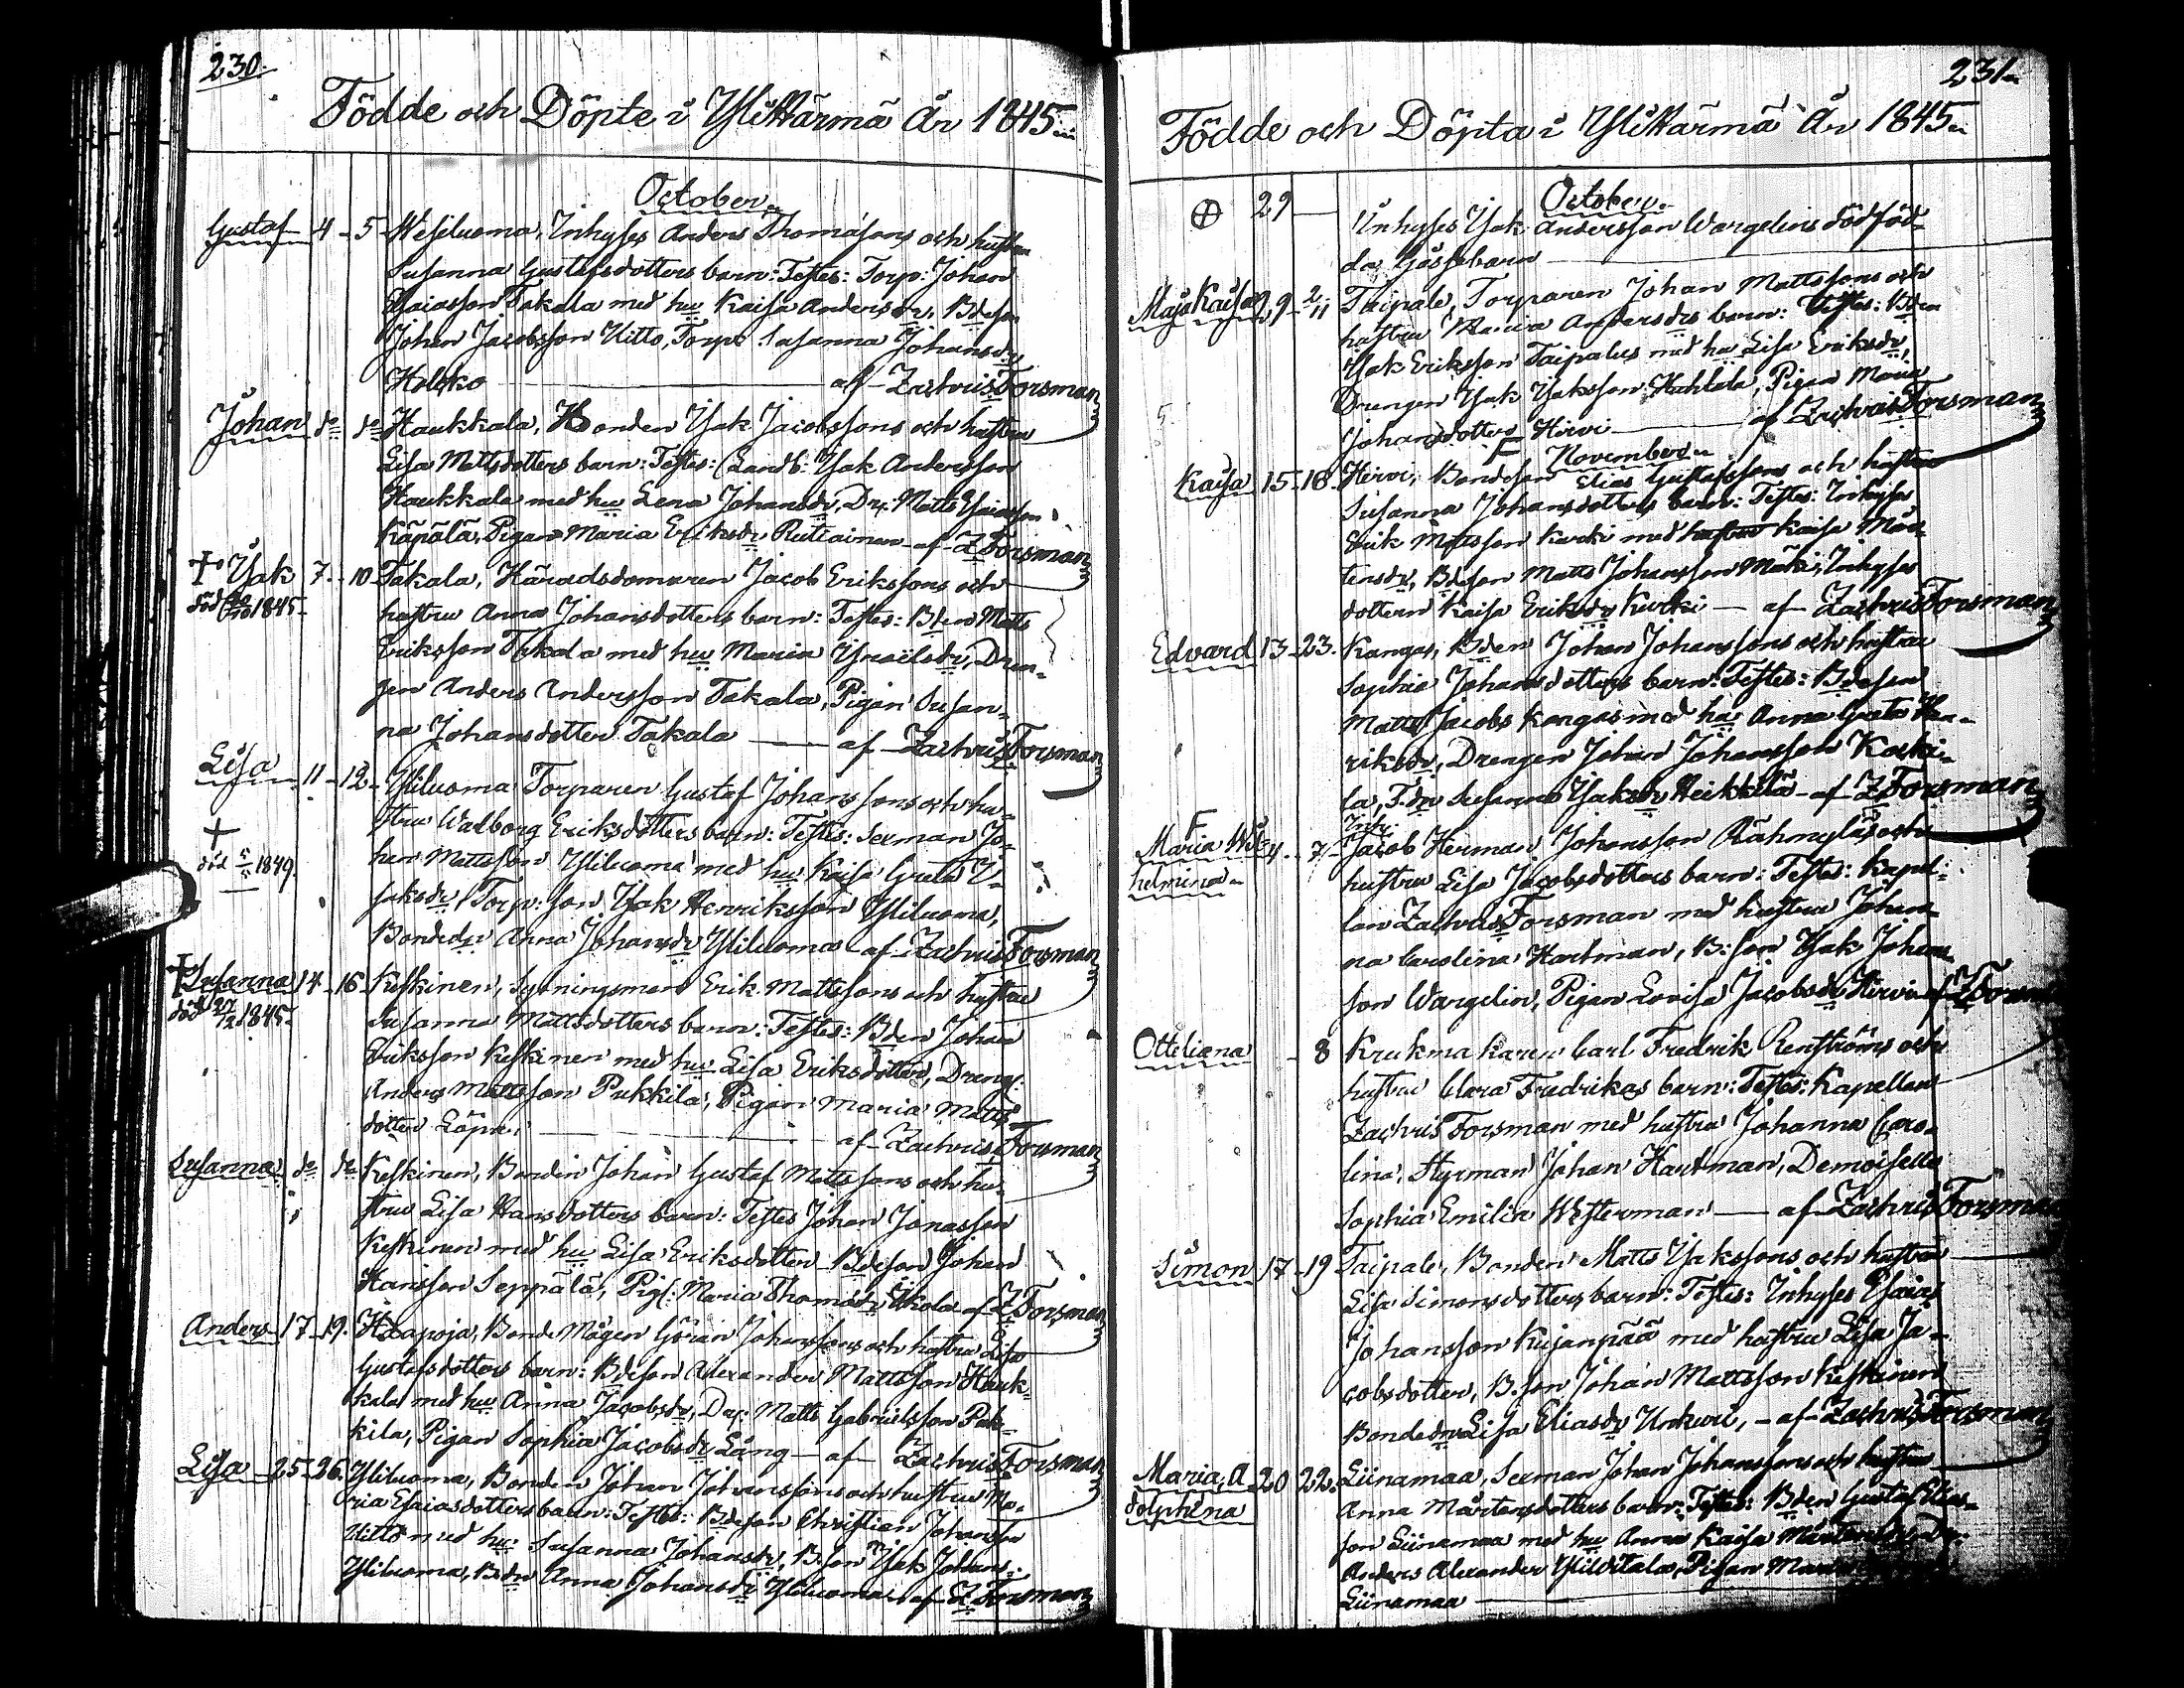 230.
Födde och Döpte i YliHärmä År 1845
October
Gustaf 4 5 Wesiluoma, Inhyses Anders Thomassons och hustru
Susanna Gustafsdotters barn: Testes: Torp: Johan
Esaiasson Takala med hu Kaisa Andersdr, Bdeson
Johan Jacobsson Uitto, Torpd: Susanna Johansdr
Holsko af Zachris Forsman
Johan do do Haukkala, Bonden Isak Jacobssons och hustru
Lisa Mattsdotters barn: Testes: Landb: Isak Andersson
Haukkala med hu Lena Johansdr, Dr: Matts Esaiasson
Käpälä, Pigan Maria Eriksdr Rutiainen af Z Forsman
+ Isak 7. 10 Takala, Häradsdomaren Jacob Erikssons och
död 1845
hustru Anna Johansdotters barn: Testes: Bden Matts
Eriksson Takala med hu Maria Israelsdr, Dren-
gen Anders Andersson Takala, Pigan Susan-
na Johansdotter Takala af Zachris Forsman
Lisa 11 12 Yliluoma Torparen Gustaf Johanssons och hu-
stru Walborg Eriksdotters barn: Testes: Sexman Jo-
+
han Mattsson Yliluoma med hu Kaisa Greta I-
död 1849.
saksdr, Torp: son Isak Henriksson Yliluoma,
Bondedr Anna Johansdr Yliluoma af Zachris Forsman
+ Susanna 14 16 Keskinen, Syningsman Erik Mattssons och hustru
död 27/12 1845.
Susanna Mattsdotters barn: Testes: Bden Johan
Eriksson Keskinen med hu Lisa Eriksdotter, Dreng:
Anders Mattsson Pukkila, Pigan Maria Matts
dotter Löpa: af Zachris Forsman
Susanna do do Keskinen, Bonden Johan Gustaf Mattssons och hu-
stru Lisa Hansdotters barn: Testes Johan Jonasson
Keskinen med hu Lisa Eriksdotter Bdeson Johan
Hansson Seppälä, Pig: Maria Thomasdr af Z Forsman
Anders 17 19. Haapoja, Bonde Mågen Göran Johanssons och hustru Lisa
Gustafsdotters barn: Bdeson Alexander Mattsson Hauk-
kala med hu Anna Jacobsdr, Dr: Matts Gabrielsson Puk-
kila, Pigan Sophia Jacobsdr Lång af Zachris Forsman
Lisa 25 26. Yliluoma, Bonden Johan Johanssons och hustru Ma-
ria Esaiasdotters barn: Testes: Bdeson Christian Johansson
Uitto med hu: Susanna Johansdr, B. son Isak Johans:
Yliluoma, Bdr Anna Johansdr Yliluoma af Z Forsman
231
Födde och Döpta i YliHärmä År 1845
October
29 Inhyses Isak Andersson Wargelins dödföd-
da Gossebarn
Maja Kaisa 29 2/11 Taipale, Torparen Johan Mattssons och
hustru Maria Andersdrs barn: Testes: Bden
Isak Eriksson Taipalus med hu Lisa Eriksdr,
Drengen Isak Isaksson Hahtala, Pigan Maria
Johansdotter Hirvi af Zachris Forsman
November
Kaisa 15 16 Hirvi, Bondeson Elias Gustafssons och hustru
Susanna Johansdotters barn: Testes: Inhyses
Erik Mattsson Karki med hustru Kaisa Mår-
tensdr, Bdeson Matts Johansson Mäki, Inhyses
dottern Kaisa Eriksdr Kurki af Zachris Forsman
Edvard 13 23. Kangas, Bden Johan Johanssons och hustru
Sophia Johansdotters barn: Testes: Bdeson
Matts Jacobs Kangas med hu Anna Greta Hen-
riksdr, Drengen Johan Johansson Koski-
la, T. dr Susanna Isaksdr Heikkilä af Z Forsman
F
Inh:
Maria Wil- 4. 7 Jacob Herman Johansson Rähmyläs och
helmina
hustru Lisa Jacobsdotters barn: Testes: Kapel-
lan Zachris Forsman med hustru Johan-
na Carolina Hartman, B: son Isak Johans-
son Wargelin, Pigan Lovisa Jacobsdr Hirvi af Z Forsman
Otteliana 8 Krukmakaren Carl Fredrik Renströms och
hustru Clara Fredrikas barn: Testes: Kapellan
Zachris Forsman med hustru Johanna Caro-
lina, Styrman Johan Hartman, Demoiselle
Sophia Emilia Westerman af Zachris Forsman
Simon 17 19 Taipale, Bonden Matts Isakssons och hustru
Lisa Simonsdotters barn: Testes: Inhyses Esaias
Johansson Kujanpää med hustru Lisa Ja-
cobsdotter, B. son Johan Mattsson Keskinen
Bondedr Lisa Eliasdr af Zachris Forsman
Maria, A 20 22. Liinamaa, Sexman Johan Johanssons och hustru
dolphina
Anna Mårtensdotters barn: Testes: Bden Gustaf Elias-
son Liinamaa med hu Anna Kaisa Mårtensdr, Dr:
Anders Alexander Ylivitala, Pigan
Liinamaa